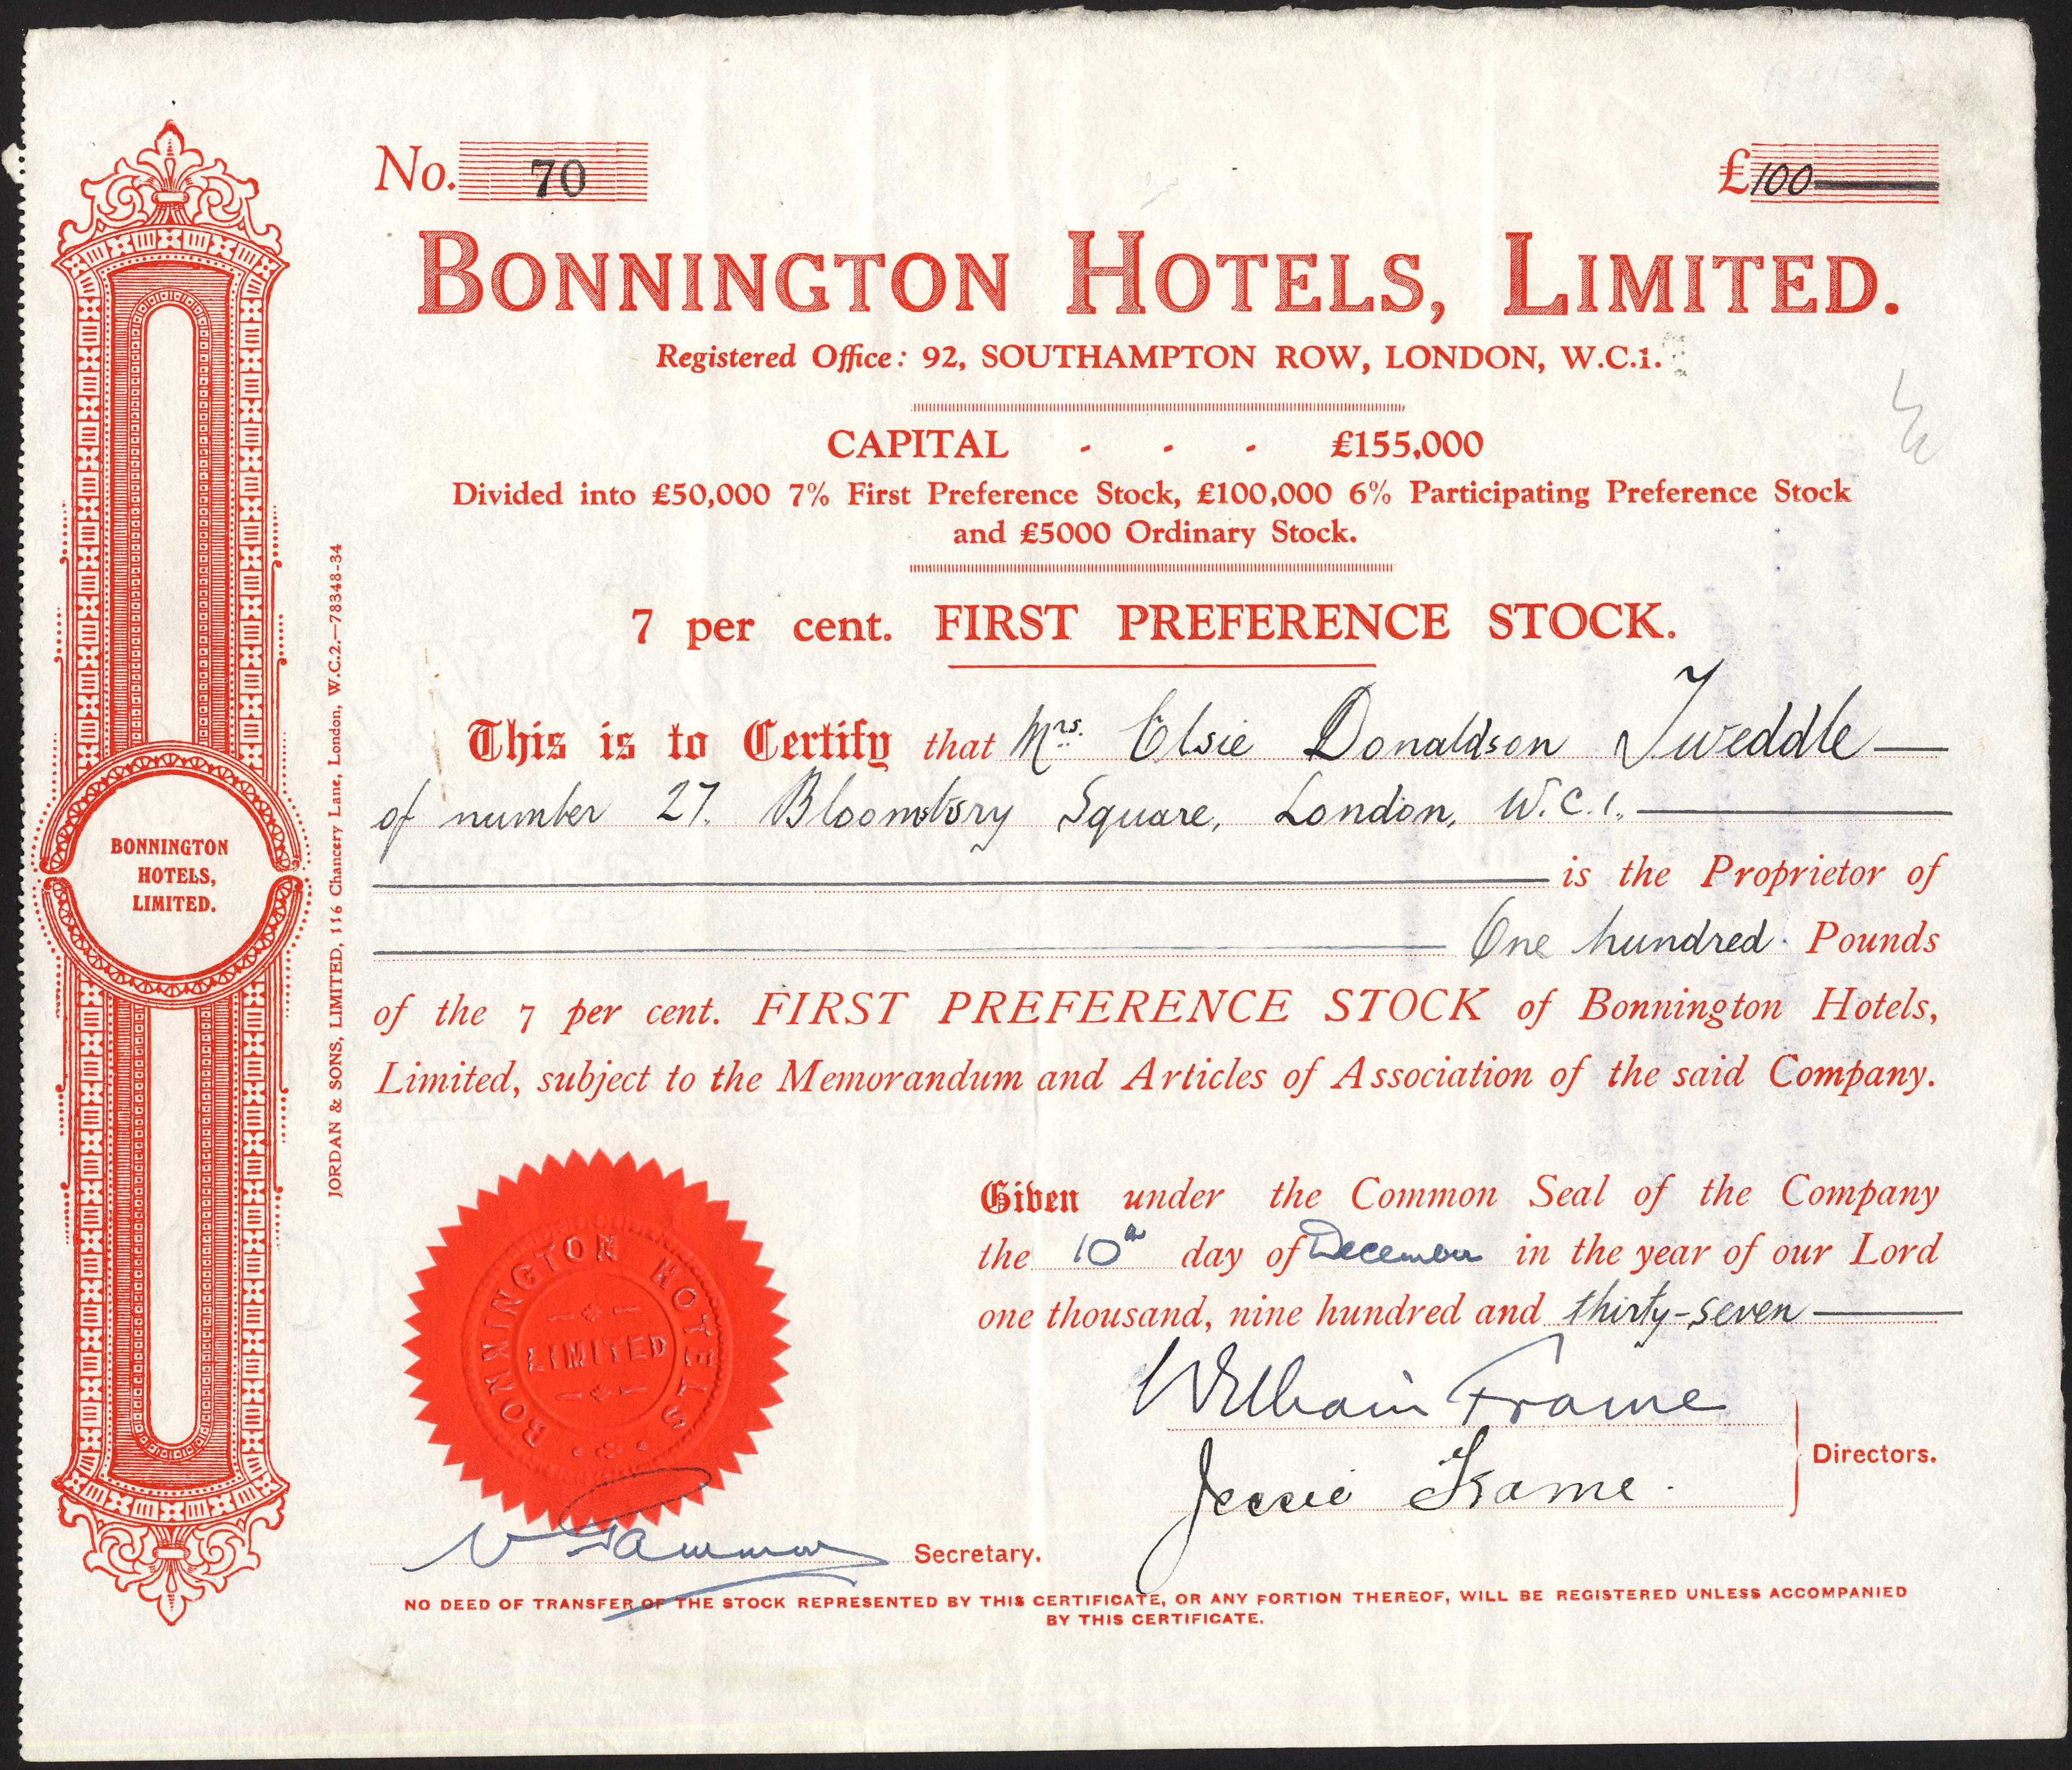 No. 70
£100
BONNINGTON HOTELS, LIMITED.
Registered Office: 92, SOUTHAMPTON ROW, LONDON, W.C.1.
CAPITAL - - - £155,000
Divided into £50,000 7% First Preference Stock, £100,000 6% Participating Preference Stock
and £5000 Ordinary Stock.
7 per cent. FIRST PREFERENCE STOCK.
This is to Certify that Mrs. Elsie Donaldson Tweddle
of number 27. Bloomsbury Square, London, W.C.1.,
is the Proprietor of
One hundred Pounds
of the 7 per cent. FIRST PREFERENCE STOCK of Bonnington Hotels,
Limited, subject to the Memorandum and Articles of Association of the said Company.
Given under the Common Seal of the Company
the 10th day of December in the year of our Lord
one thousand, nine hundred and thirty-seven
William Frame
Jessie Frame.
Directors.
Secretary.
NO DEED OF TRANSFER OF THE STOCK REPRESENTED BY THIS CERTIFICATE, OR ANY FORTION THEREOF, WILL BE REGISTERED UNLESS ACCOMPANIED
BY THIS CERTIFICATE.
BONNINGTON HOTELS
LIMITED
BONNINGTON
HOTELS,
LIMITED.
JORDAN & SONS, LIMITED, 116 Chancery Lane, London, W.C.2.—78348-34